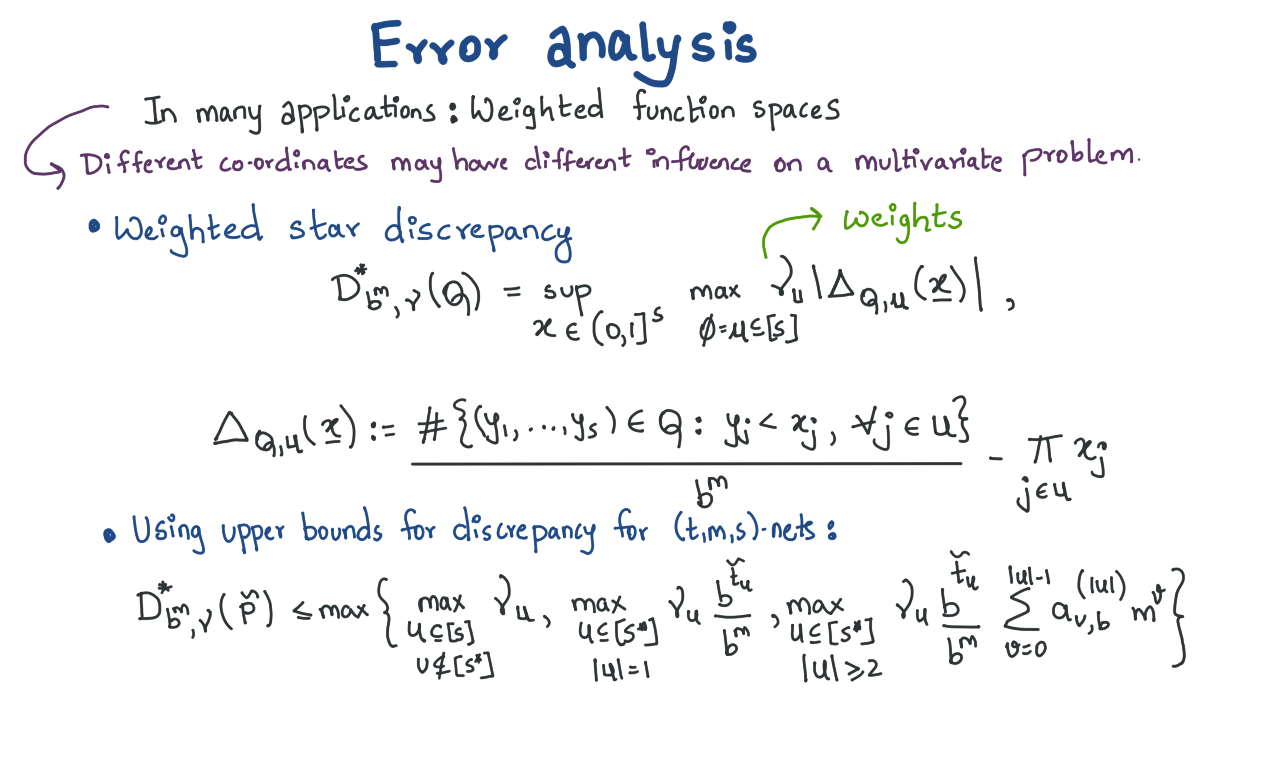 Error analysis
In many applications : Weighted function spaces
Different co-ordinates may have different influence on a multivariate problem.
• Weighted star discrepancy
weights
D*_{b^m,γ}(Q) = sup_{x ∈ (0,1]^s} max_{∅=u⊆[s]} γ_u |Δ_{Q,u}(x)| ,
Δ_{Q,u}(x) := #{(y_1, ..., y_s) ∈ Q : y_j < x_j , ∀j ∈ u} / b^m - π_{j∈u} x_j
• Using upper bounds for discrepancy for (t,m,s)-nets :
D*_{b^m,γ}(p̃) ≤ max { max_{u⊆[s], u⊄[s*]} γ_u , max_{u⊆[s*], |u|=1} γ_u b^{t̃_u} / b^m , max_{u⊆[s*], |u|⩾2} γ_u b^{t̃_u} / b^m Σ_{v=0}^{|u|-1} a_{v,b}^{(|u|)} m^v }